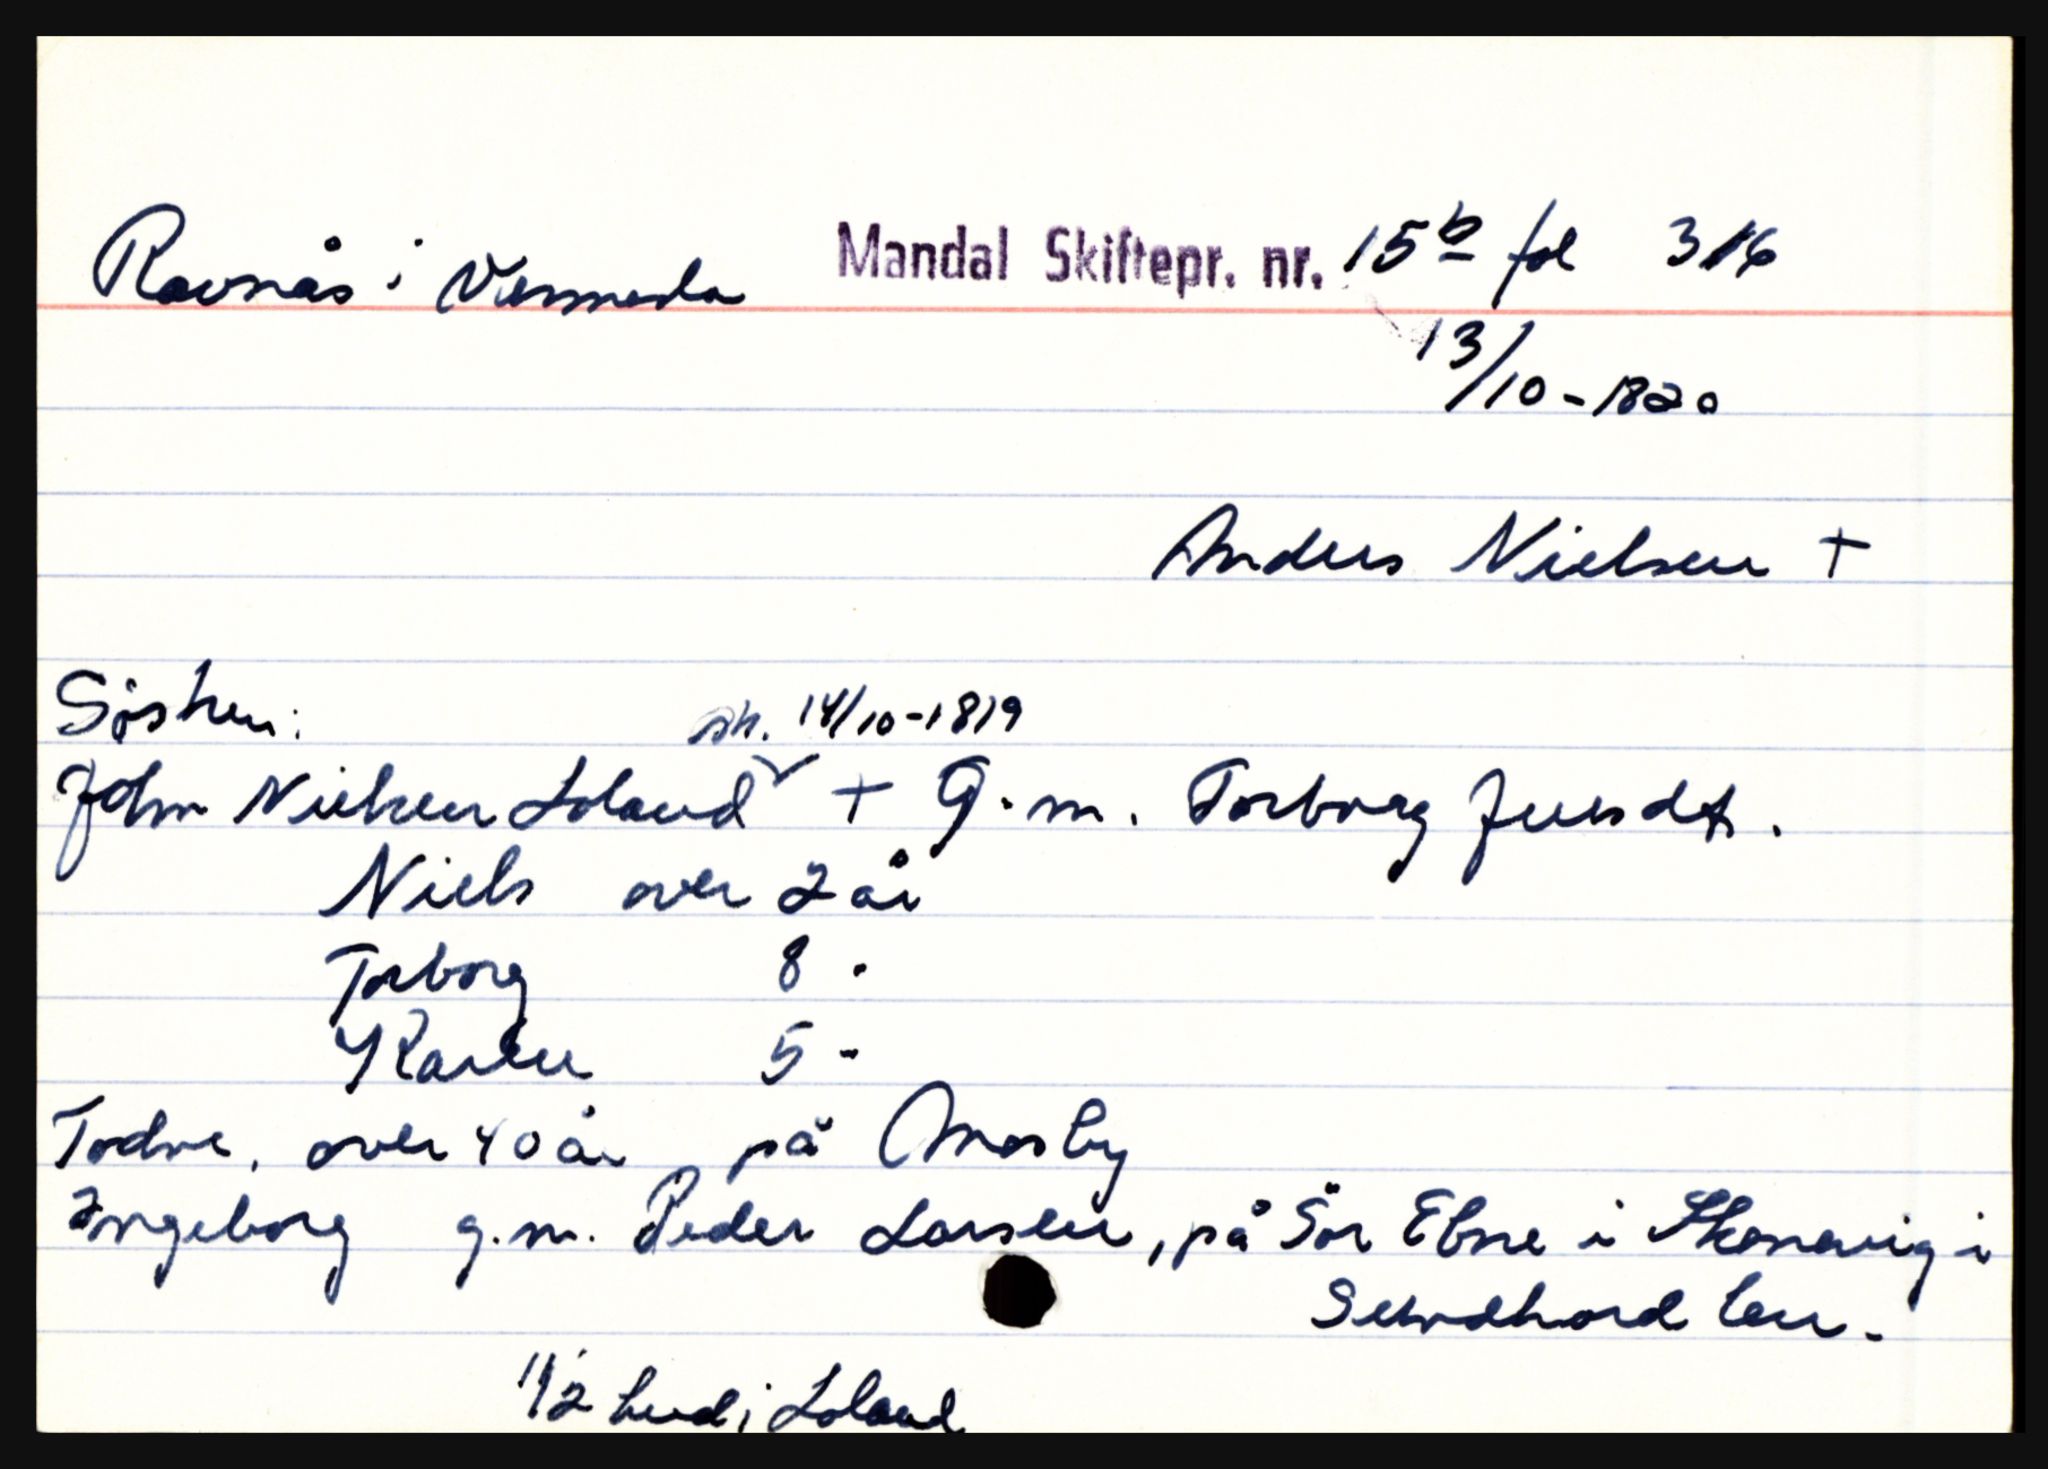 Ravnås i Vennesla Mandal Skiftepr. nr. 15b fol 316
13/10-1820
Anders Nielsen +
Søsken:
sk. 14/10-1819
John Nielsen Loland + G.m. Torborg Juusdt.
Niels over 2 år
Torborg 8 "
Karen 5 "
Todne, over 40 år på Omosby
Ingeborg g.m. Peder Larsen, på Sør Ebne i Skonevig i
Sundhordlen.
1 1/2 hud i Loland